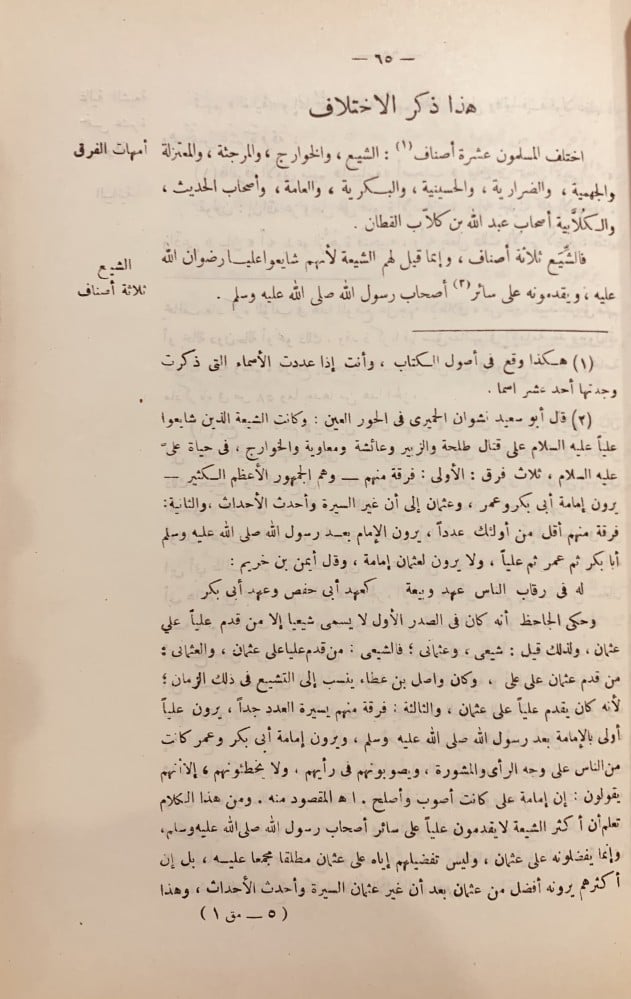 — ٦٥ —
هذا ذكر الاختلاف
اختلف المسلمون عشرة أصناف (١) : الشيع ، والخوارج ، والمرجئة ، والمعتزلة
أمهات الفرق
والجهمية ، والضرارية ، والحسينية ، والبكرية ، والعامة ، وأصحاب الحديث ،
والكُلاَّبية أصحاب عبد الله بن كلاّب القطان .
فالشِّيَع ثلاثة أصناف ، وإنما قيل لهم الشيعة لأنهم شايعوا عليا رضوان الله
الشيع
ثلاثة أصناف
عليه ، ويقدمونه على سائر (٢) أصحاب رسول الله صلى الله عليه وسلم .
(١) هكذا وقع فى أصول الكتاب ، وأنت إذا عددت الأسماء التى ذكرت
وجدتها أحد عشر اسما .
(٢) قال أبو سعيد نشوان الحميرى فى الحور العين : وكانت الشيعة الذين شايعوا
علياً عليه السلام على قتال طلحة والزبير وعائشة ومعاوية والخوارج ، فى حياة علىّ
عليه السلام ، ثلاث فرق : الأولى : فرقة منهم — وهم الجمهور الأعظم الكثير —
يرون إمامة أبى بكر وعمر ، وعثمان إلى أن غير السيرة وأحدث الأحداث ، والثانية :
فرقة منهم أقل من أولئك عدداً ، يرون الإمام بعد رسول الله صلى الله عليه وسلم
أبا بكر ثم عمر ثم علياً ، ولا يرون لعثمان إمامة ، وقال أيمن بن خريم :
له فى رقاب الناس عهد وبيعة كعهد أبى حفص وعهد أبى بكر
وحكى الجاحظ أنه كان فى الصدر الأول لا يسمى شيعيا إلا من قدم علياً على
عثمان ، ولذلك قيل : شيعى ، وعثمانى ؛ فالشيعى : من قدم عليا على عثمان ، والعثمانى :
من قدم عثمان على على ، وكان واصل بن عطاء ينسب إلى التشيع فى ذلك الزمان ؛
لأنه كان يقدم علياً على عثمان ، والثالثة : فرقة منهم يسيرة العدد جداً ، يرون علياً
أولى بالإمامة بعد رسول الله صلى الله عليه وسلم ، ويرون إمامة أبى بكر وعمر كانت
من الناس على وجه الرأى والمشورة ، ويصوبونهم فى رأيهم ، ولا يخطئونهم ، إلا أنهم
يقولون : إن إمامة على كانت أصوب وأصلح . اه المقصود منه . ومن هذا الكلام
تعلم أن أكثر الشيعة لا يقدمون علياً على سائر أصحاب رسول الله صلى الله عليه وسلم ،
وإنما يفضلونه على عثمان ، وليس تفضيلهم إياه على عثمان مطلقا مجمعا عليه ، بل إن
أكثرهم يرونه أفضل من عثمان بعد أن غير عثمان السيرة وأحدث الأحداث ، وهذا
(٥ — مق ١)